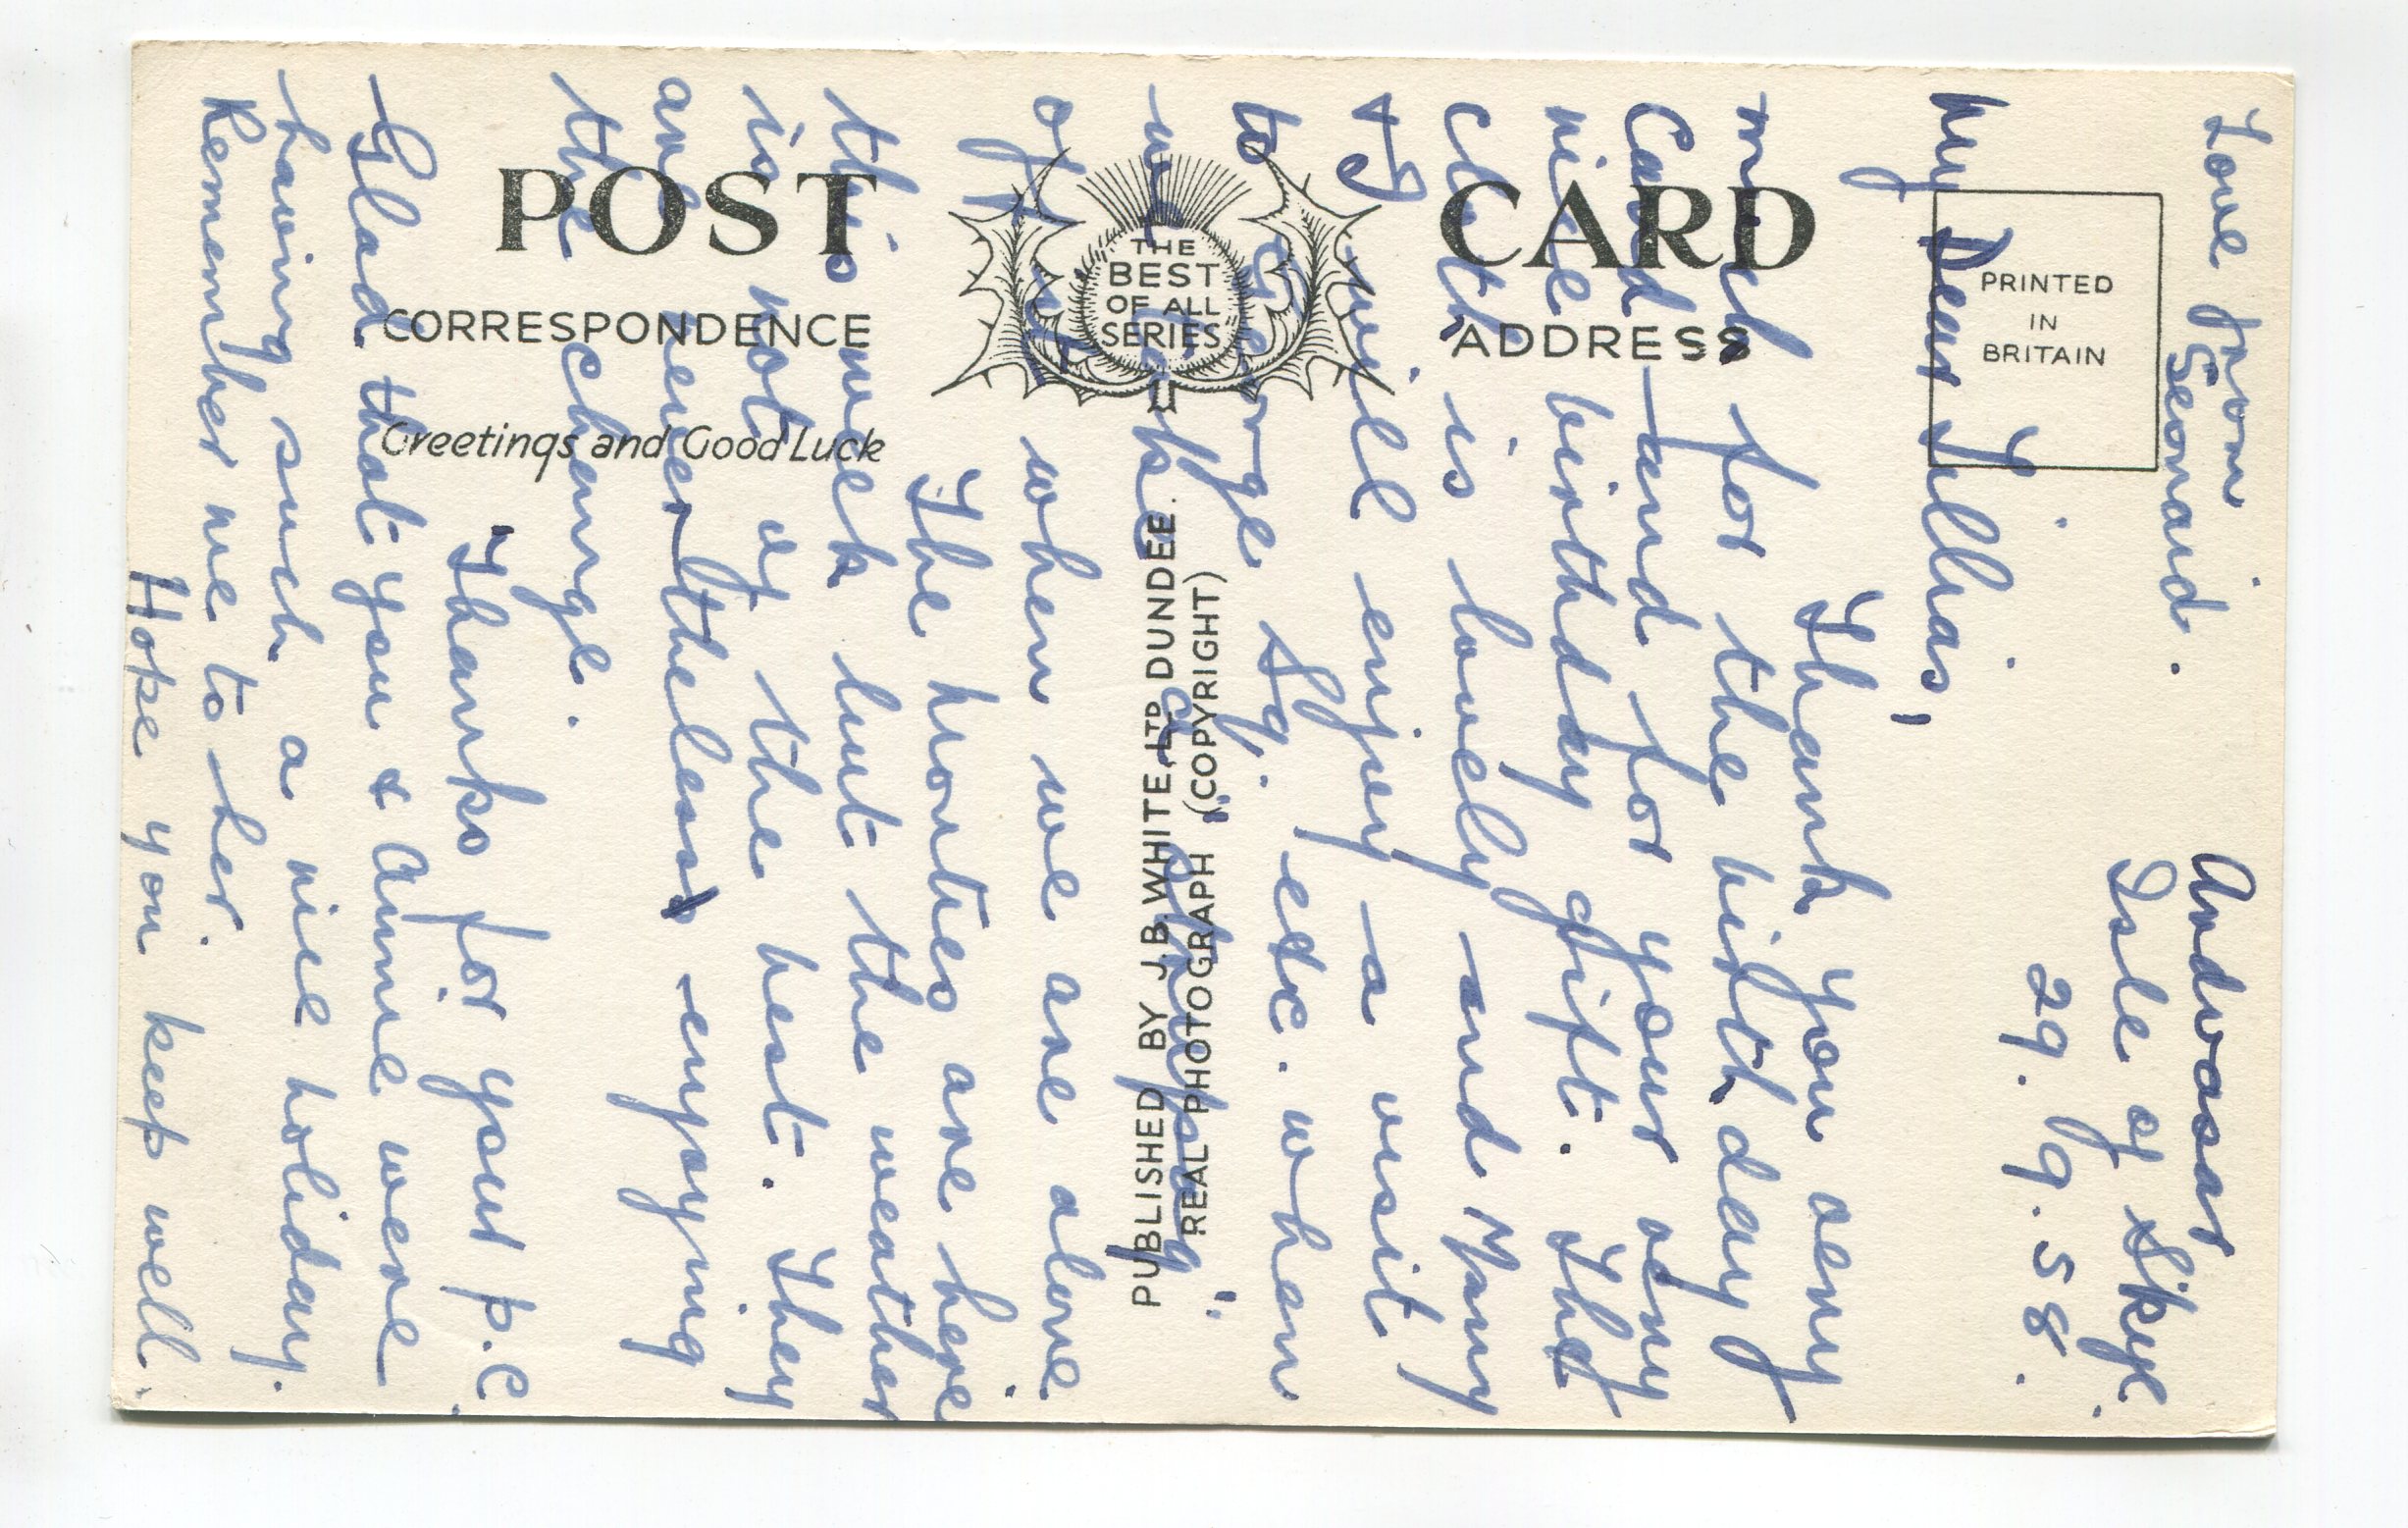 POST CARD
THE
BEST
OF ALL
SERIES
CORRESPONDENCE
ADDRESS
Greetings and Good Luck
PRINTED
IN
BRITAIN
PUBLISHED BY J.B. WHITE, LTD DUNDEE.
REAL PHOTOGRAPH (COPYRIGHT)
Love from
Seonaid.
Ardvasar
Isle of Skye.
29.9.58.
My Dear
Thank you very
much for the birthday
Card and for your very
nice birthday gift. The
cloth is lovely and Mary
+ I will enjoy a visit
to George Sq. etc. when
we take
off when we are alone
The are here
this week but the weather
is not of the best. They
are nevertheless enjoying
the change.
Thanks for your p.c.
Glad that you & Annie were
having such a nice holiday.
Remember me to her.
Hope you keep well.